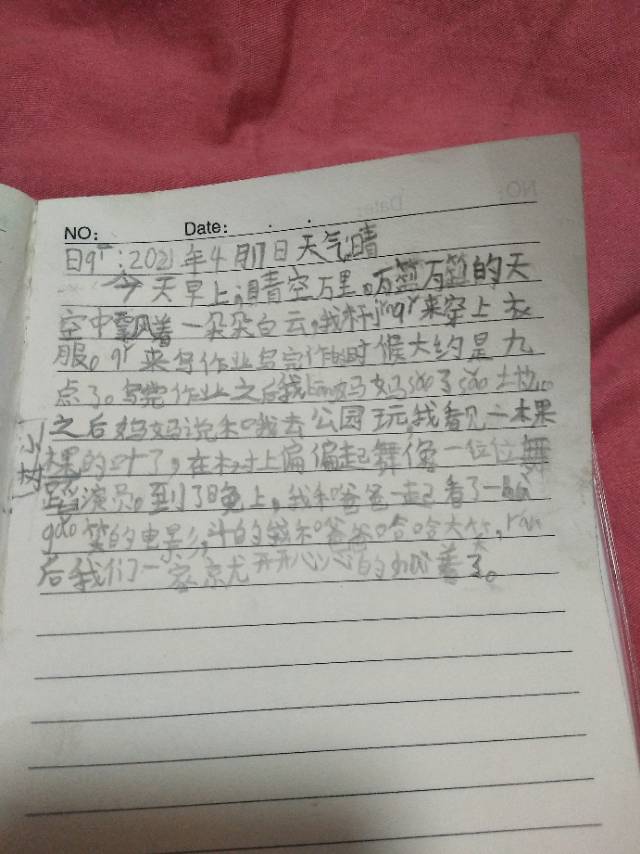 NO: Date:
日qī:2021年4月17日天气晴
今天早上,晴空万里。万里万里的天
空中飘着一朵朵白云,我 qǐ来穿上衣
服。qǐ来写作业写完作的时候大约是九
点了。写完作业之后我bāng妈妈sǎo了sǎo土地。
之后妈妈说和我去公园玩,我看见一棵
小树
棵的叶了,在树上偏偏起舞像一位位舞
蹈演员。到了晚上,我和爸爸一起看了一
gǎo笑的电影,斗的我和爸爸哈哈大笑,rán
后我们一家京尤开开心心的 着了。